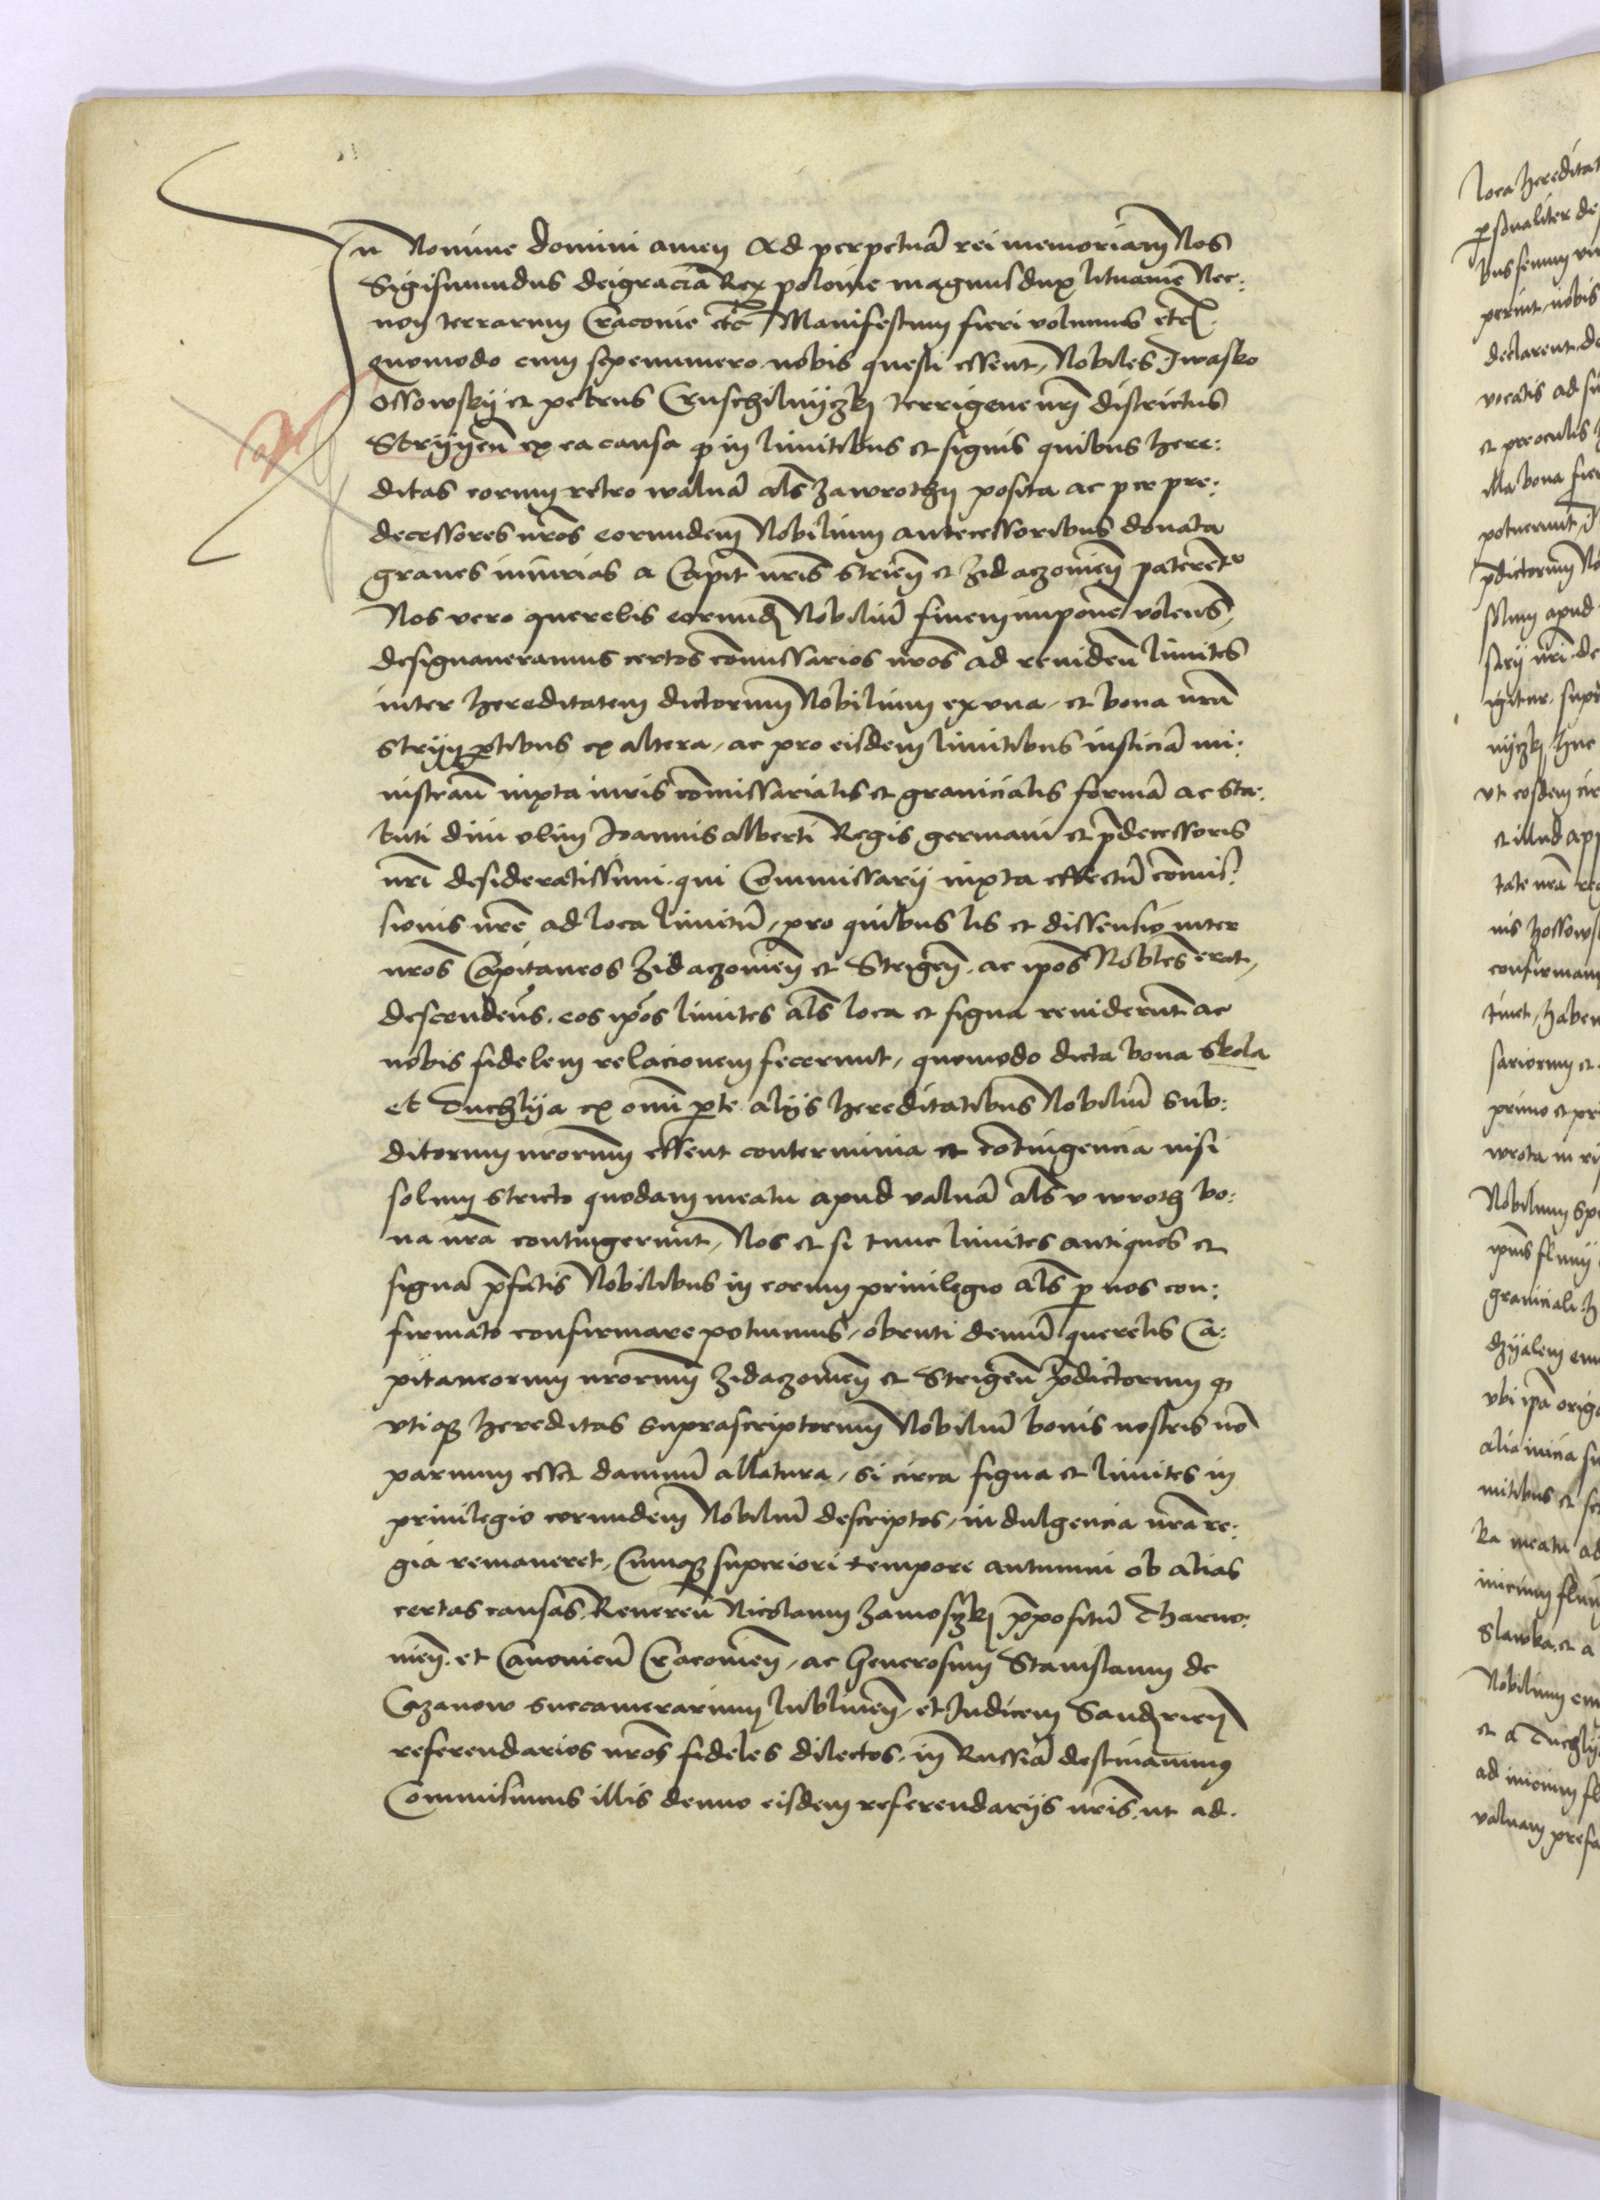 In Nomine domini amen Ad perpetuã rei memoriam Nos
Sigismundus dei gracia Rex polonie magnus dux lituanie Nec:
non terrarum Cracouie etc̃ Manifestum fieri volumus etc̃
quomodo cum sepenumero nobis questi essent, Nobiles Iwasko
Ossowskÿ et petrus Cruschilnÿczkÿ terrigene nr̃i districtus
Strÿÿen̄ ex ea causa q̃ in limitibus et signis quibus here:
ditas eorum retro waluã al̃s zawrothÿ posita ac per pre:
decessores nr̃os eorundem Nobilium antecessoribus donata
graues iniurias a Capit̃ nr̃is Strien̄ et Zidaczouien̄ paterẽtr
Nos vero querelis eorund Nobiliũ finem imponer̃ volens,
designaueramus certos cõmissarios nr̃os ad reuidend̃ limites
inter hereditatem dictorum Nobilium ex vna, et bona nr̃a
Strÿÿ p̱tibus ex altera, ac pro eisdem limitibus iusticiã mi:
nistrand̃ iuxta iuris cõmissarialis et granicialis formã ac sta:
tuti diui olim Ioannis alberti Regis germani et p̃decessoris
nr̃i desideratissimi. qui Commissarÿ iuxta effectũ cõmis:
sionis nr̃e ad loca limitũ, pro quibus lis et dissensio inter
nr̃os Capitaneos Zidaczouien̄ et Strigen̄. ac ip̃os Nobiles erat,
descenden̄s. eos ip̃os limites al̃s loca et signa reuiderunt ac
nobis fidelem relacionem fecerunt, quomodo dicta bona Skola
et Tuchlÿa ex om̃i p̱te alÿs hereditatibus Nobiliũ sub:
ditorum nr̃orum essent conterminia et cõtingencia nisi
solum stricto quodam meatu apud valuã al̃s v wroth bo:
na nr̃a contingerunt, Nos et si tunc limites antiquos et
signa p̃fatis Nobilibus in eorum priuilegio al̃s p̱ nos con:
firmato confirmare potuimus, obruti demũ querelis Ca:
pitaneorum nr̃orum Zidaczouien̄ et Strigen̄ p̃dictorum q̃
vtiq̃ hereditas suprascriptorum Nobiliũ bonis nostris nõ
paruum esset damnũ allatura, si circa signa et limites in
priuilegio eorundem Nobiliũ descriptos, indulgencia nr̃a re:
gia remaneret, Cumq̃ superiori tempore autumni ob alias
certas causas Reueren̄ Nicolaum Zamoskÿ p̃positũ Tharno:
uien̄. et Canonicũ Cracouien̄, ac Generosum Stanislaum de
Cazanow succamerarium lublinen̄, et Iudicem Sandxrien̄
referendarios nr̃os fideles dilectos, in Russiã destinauimus
Commisimus illis denuo eisdem referendarÿs nr̃is, ut ad.